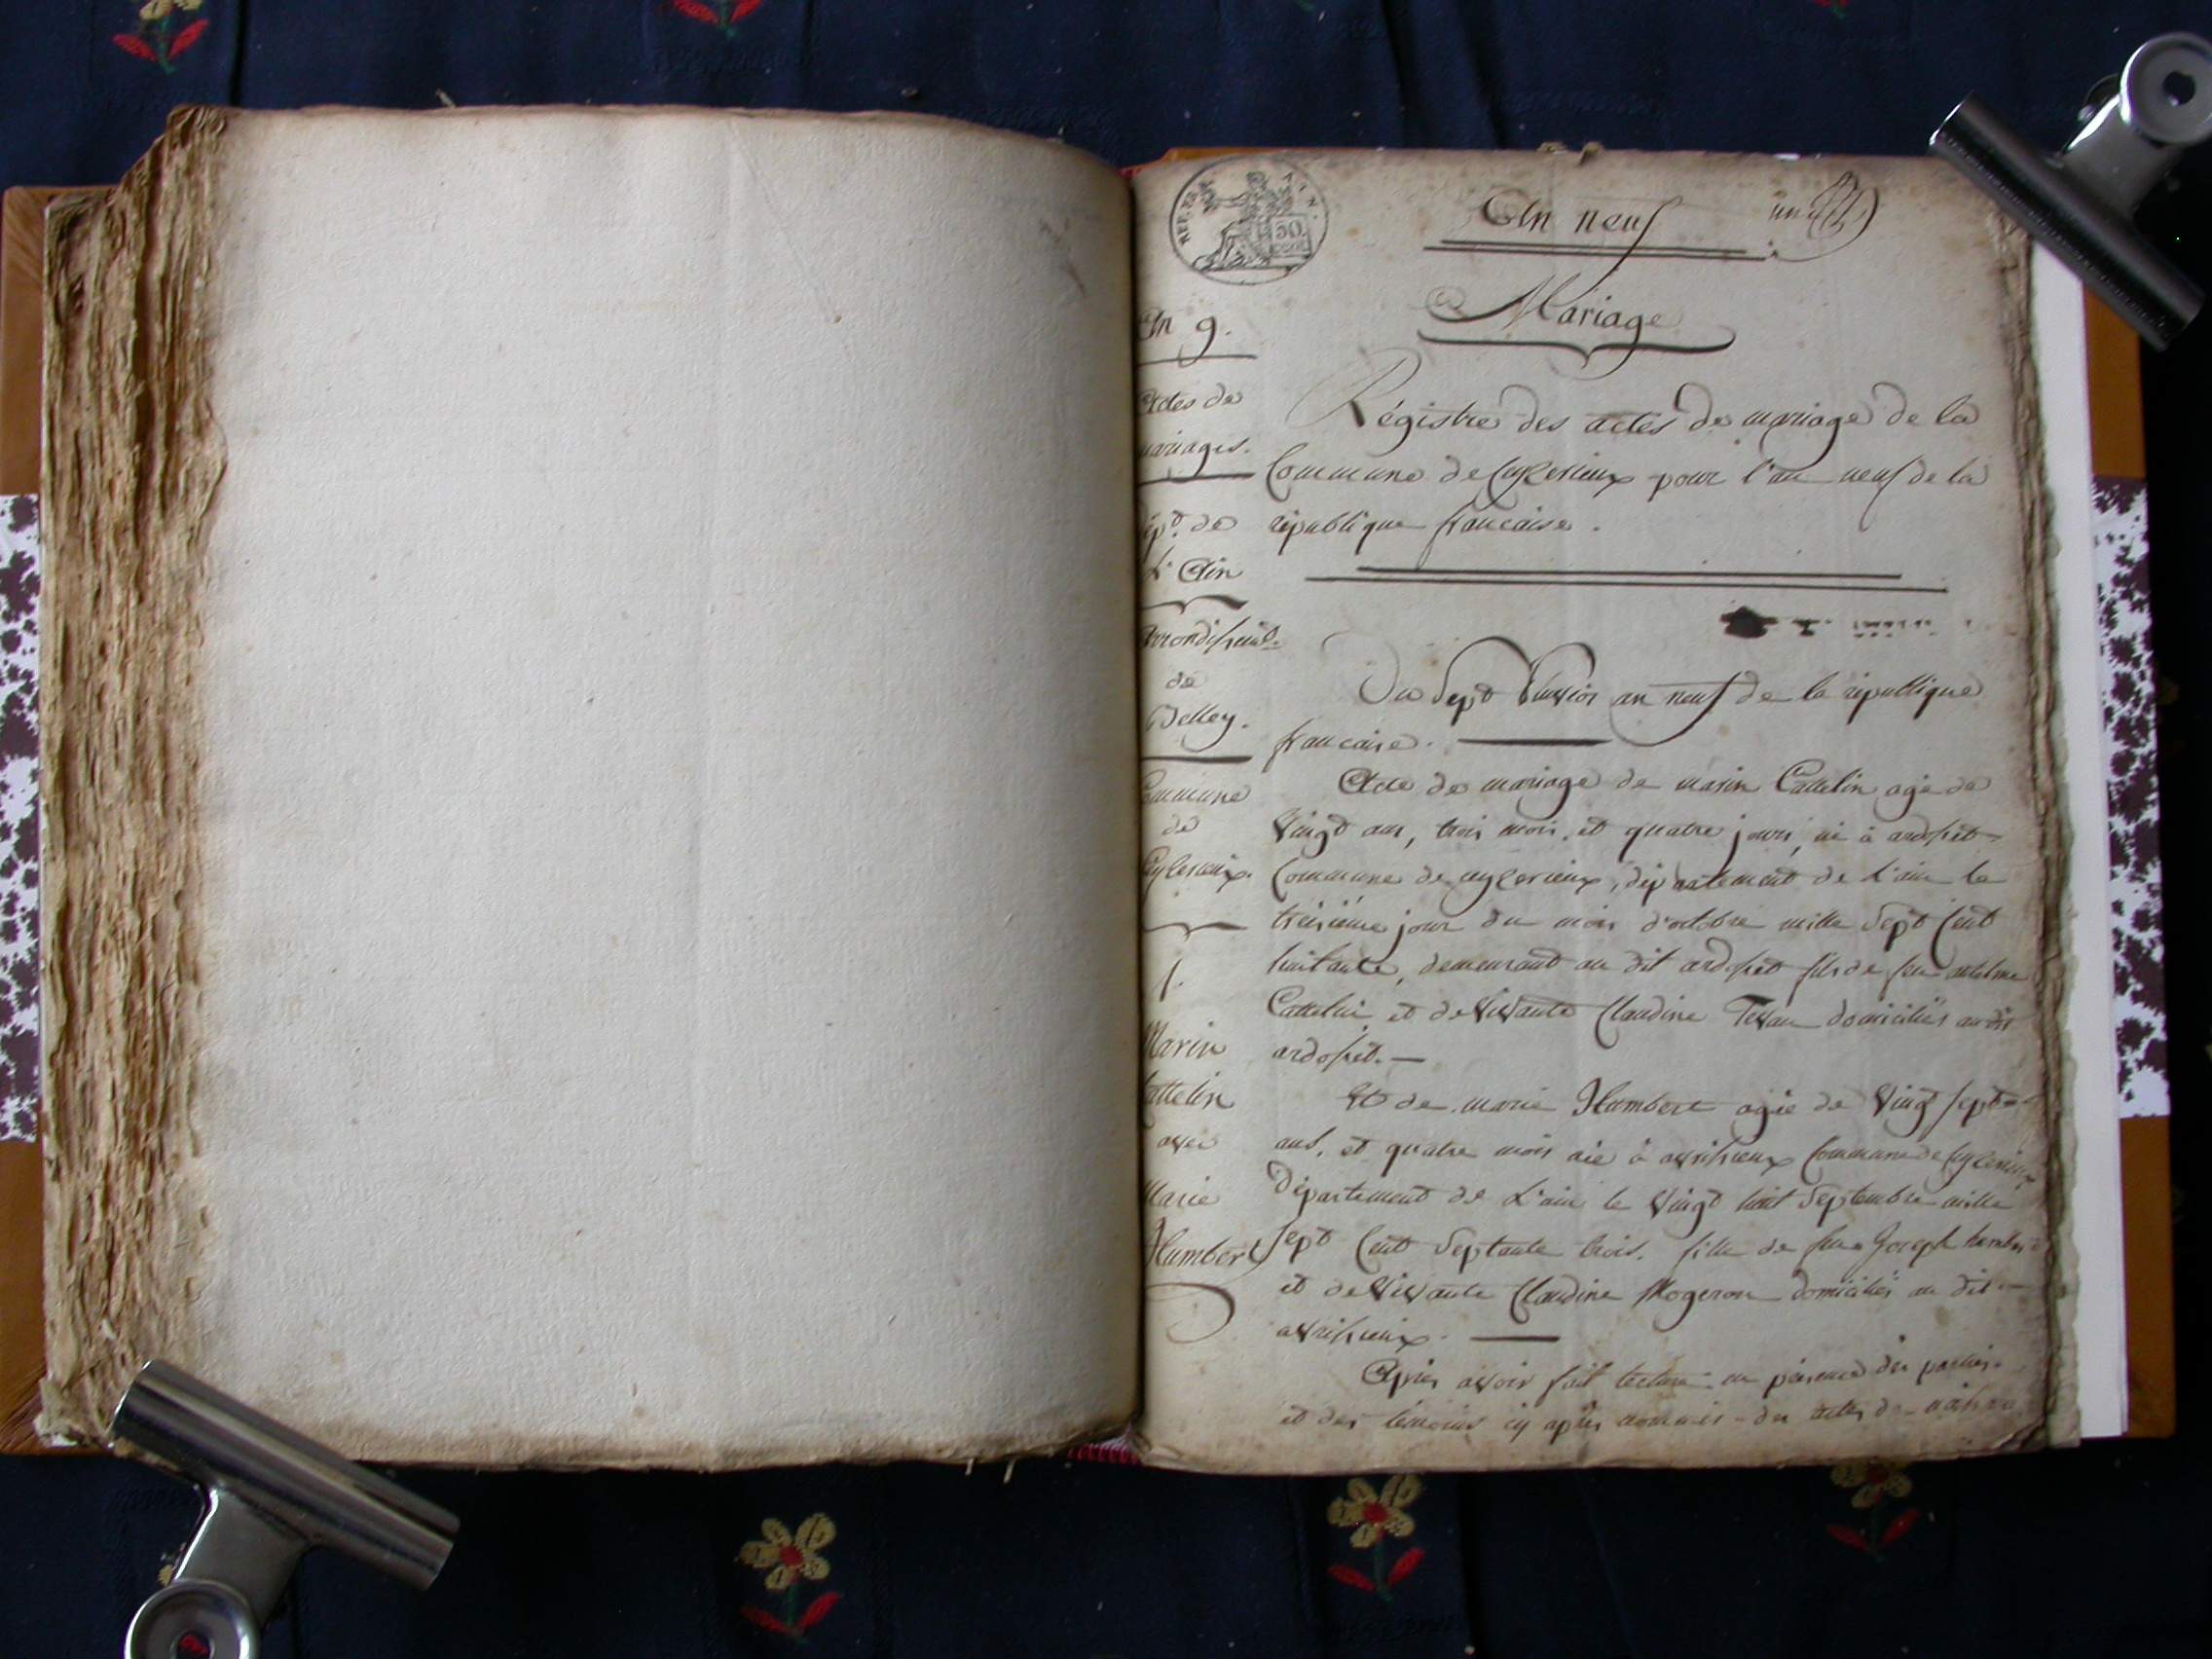 REP. FRA.
50.
CENT.
An neuf
un
Mariage
An 9.
Actes de
mariages.
Dépt. de
L'Ain
Arrondissemt.
de
Belley.
Commune
de
Ceyzerieux.
1.
Marin
Cattelin
avec
Marie
Humbert
Régistre des actes de mariage de la
Commune de Ceyzerieux pour l'an neuf de la
république francaise.
Du Sept Nivios an neuf de la république
francaise.
Acte de mariage de marin Cattelin agé de
Vingt ans, trois mois, et quatre jours, né à ardosset
Commune de ceyzerieux, département de L'ain le
treisième jour du mois d'octobre mille Sept Cent
huitante, demeurant au dit ardosset fils de feu antelme
Cattelin et de Vivante Claudine Tevan domiciliés au dit
ardosset.
Et de marie Humbert agée de Vingt sept
ans, et quatre mois née à avrissieux Commune de Ceyzerieux
Département de L'ain le Vingt huit Septembre mille
Sept Cent Septante trois. fille de feu Joseph humbert
et de Vivante Claudine Mogeron domiciliés au dit
avrissieux.
Après avoir fait lecture en présence des parties
et des témoins cy après nommés des actes de naissance